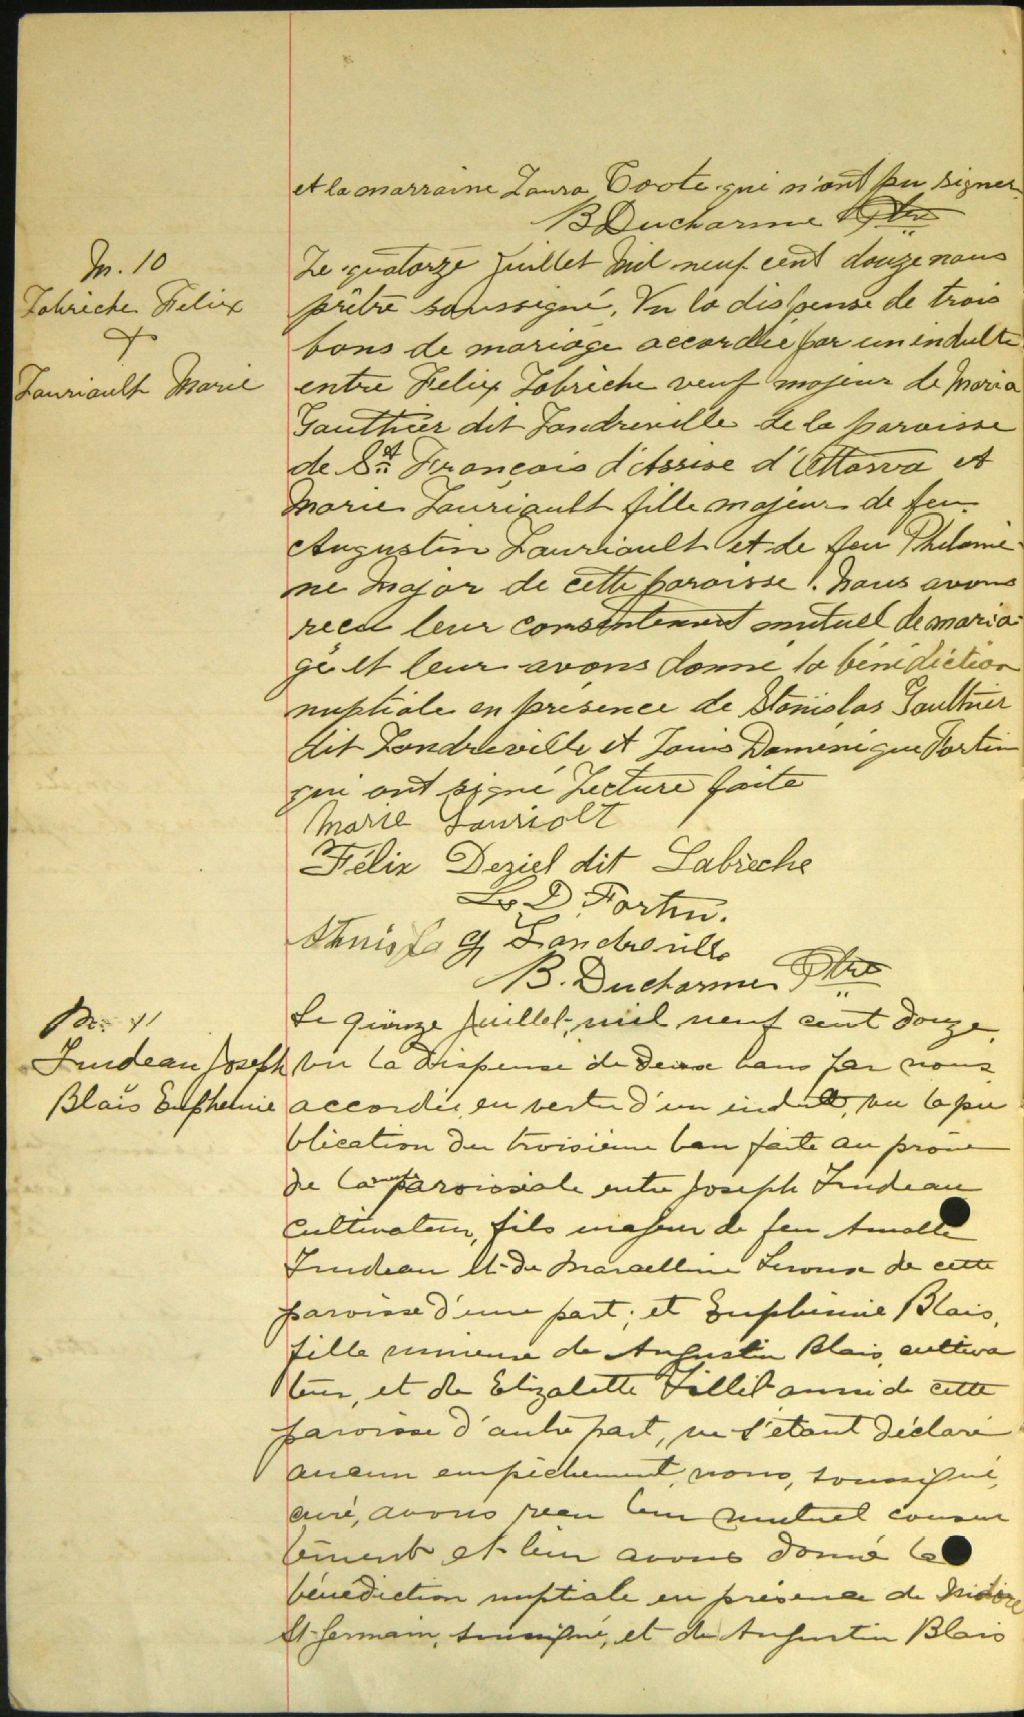 et la marraine Laura Coote qui n'ont pu signer.
B Ducharme Ptre
M. 10
Labrèche Felix
+
Lauriault Marie
Le quatorze juillet Mil neuf cent douze nous
prêtre soussigné, Vu la dispense de trois
bans de mariage accordée par un indulte
entre Felix Labrèche veuf majeur de Maria
Gauthier dit Landreville de la paroisse
de St François d'Assise d'Ottawa et
Marie Lauriault fille majeur de feu
Augustin Lauriault et de feu Philomè-
ne Major de cette paroisse. Nous avons
recu leur consentement mutuel de maria-
ge et leur avons donné la bénédiction
nuptiale en présence de Stanislas Gaulthier
dit Landreville et Louis Doménique Fortin
qui ont signé Lecture faite
Marie Lauriolt
Félix Deziel dit Labrèche
Ls D. Fortin.
Stanisla G Landreville
B. Ducharme Ptre
M. 11
Trudeau Joseph
Blais Euphemie
Le quinze Juillet, mil neuf cent douze,
vu la dispense de deux bans par nous
accordée en vertu d'un indult, vu la pu
blication du troisième ban faite au prône
de la messe paroissiale entre Joseph Trudeau
cultivateur, fils majeur de feu Amable
Trudeau et de Marcelline Leroux de cette
paroisse d'une part; et Euphémie Blais,
fille mineure de Augustin Blais, cultiva
teur, et de Elizabette Fillet aussi de cette
paroisse d'autre part, ne s'étant déclaré
aucun empêchement, nous, soussigné,
curé, avons recu leur mutuel consen
tement et leur avons donné la
bénédiction nuptiale en présence de Isidore
St-Germain, soussigné, et de Augustin Blais